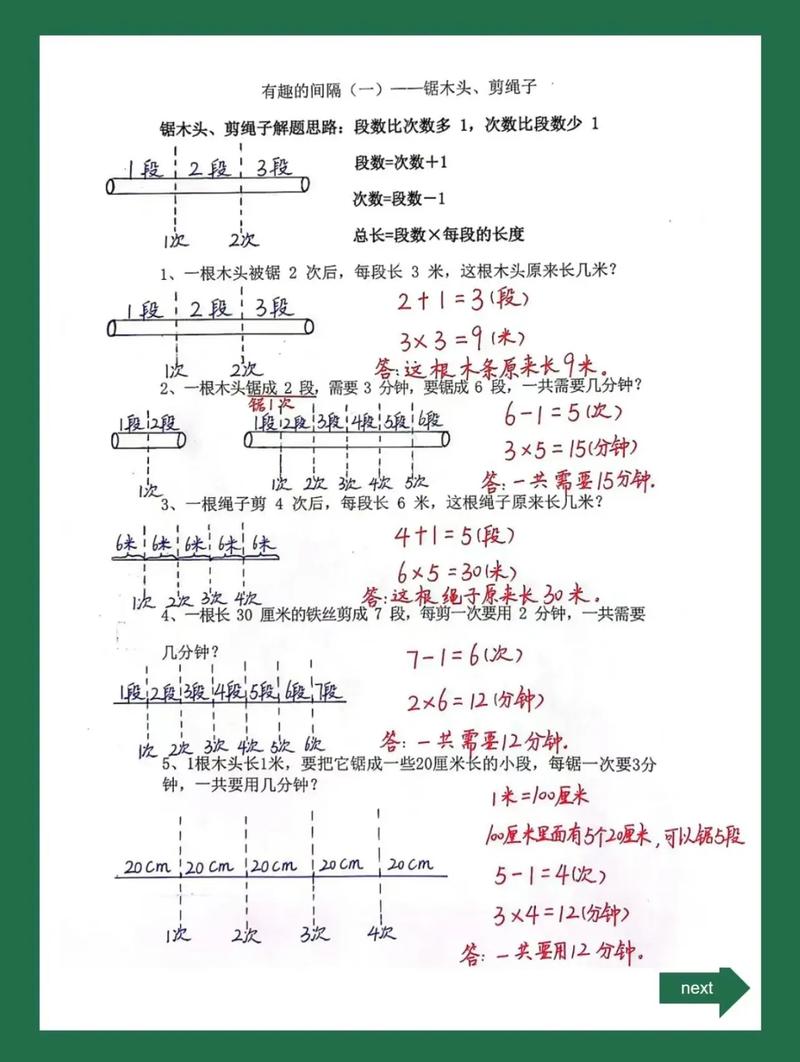 有趣的间隔（一）——锯木头、剪绳子
锯木头、剪绳子解题思路：段数比次数多 1，次数比段数少 1
1段 2段 3段
段数=次数+1
次数=段数-1
1次 2次
总长=段数×每段的长度
1、一根木头被锯 2 次后，每段长 3 米，这根木头原来长几米？
1段 2段 3段
2+1=3(段)
3×3=9(米)
1次 2次
答:这根木条原来长9米。
2、一根木头锯成 2 段，需要 3 分钟，要锯成 6 段，一共需要几分钟？
锯1次
1段 2段
1段 2段 3段 4段 5段 6段
6-1=5(次)
3×5=15(分钟)
1次
1次 2次 3次 4次 5次
答:一共需要15分钟.
3、一根绳子剪 4 次后，每段长 6 米，这根绳子原来长几米？
6米 6米 6米 6米 6米
4+1=5(段)
6×5=30(米)
1次 2次 3次 4次
答:这根绳子原来长30米.
4、一根长 30 厘米的铁丝剪成 7 段，每剪一次要用 2 分钟，一共需要
几分钟？
7-1=6(次)
1段 2段 3段 4段 5段 6段 7段
2×6=12(分钟)
1次 2次 3次 4次 5次 6次
答:一共需要12分钟.
5、1根木头长1米，要把它锯成一些20厘米长的小段，每锯一次要3分
钟，一共要用几分钟？
1米=100厘米
100厘米里面有5个20厘米,可以锯5段
20cm 20cm 20cm 20cm 20cm
5-1=4(次)
3×4=12(分钟)
1次 2次 3次 4次
答:一共要用12分钟。
next